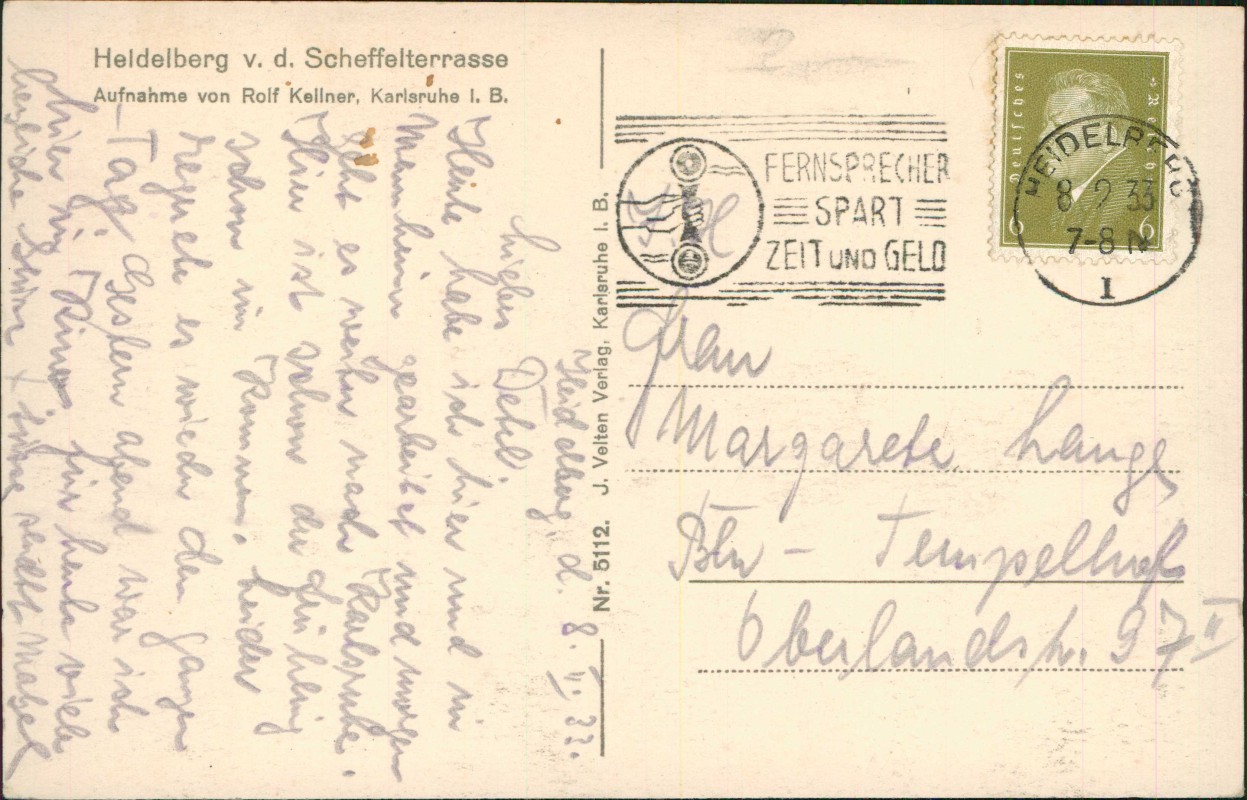 Heidelberg v. d. Scheffelterrasse
Aufnahme von Rolf Kellner, Karlsruhe i. B.
Heidelberg, d. 8. II. 33.
Liebes Detel.
Heute habe ich hier und in
Mannheim gearbeitet und morgen
geht es weiter nach Karlsruhe.
Hier ist schon der Frühling
schon im Kommen. Leider
es wieder den ganzen
Tag. Gestern abend war ich
hier im Kino. Für heute viele
herzliche sendet
Nr. 5112. J. Velten Verlag, Karlsruhe i. B.
FERNSPRECHER
SPART
ZEIT UND GELD
Deutsches Reich
6 6
HEIDELBERG
8 2 33
7-8 N
1
Frau
Margarete Lange
Bln - Tempelhof
Oberlandstr. 97 II